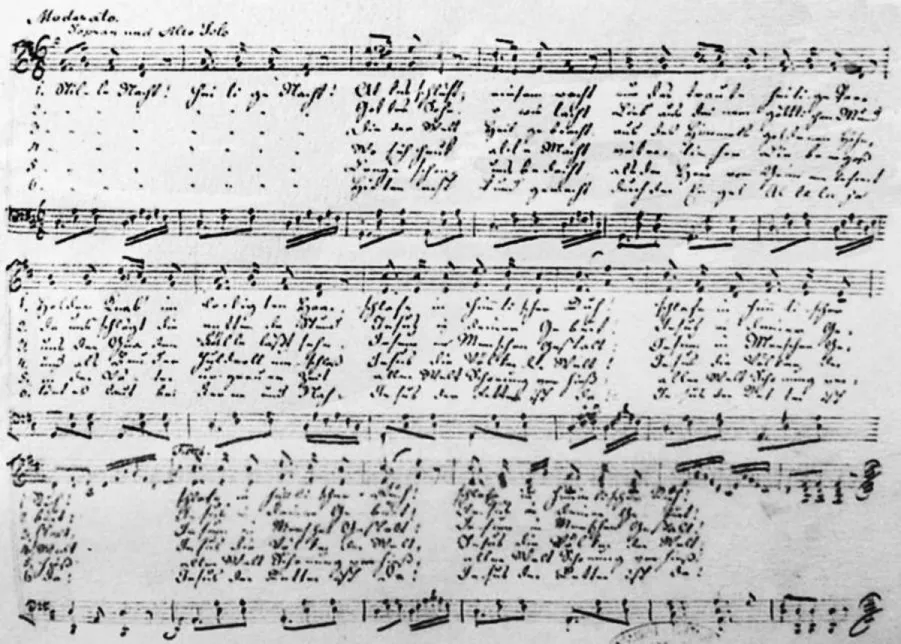 Moderato.
Sopran und Alto Solo
1. Stille Nacht! heilige Nacht! Alles schläft; einsam wacht nur das traute heilige Paar
2. Gottes Sohn o wie lacht Lieb aus deinem göttlichen Mund
3. die der Welt Heil gebracht, aus des Himmels goldenen Höhn,
4. Wo sich heut alle Macht
5. Lange schon uns bedacht, als der Herr vom Grimme befreit
6. Hirten erst kund gemacht durch der Engel Alleluja
1. Holder Knab im lockigten Haar, schlafe in himmlischer Ruh! schlafe in himmlischer
2. da uns schlägt die rettende Stund Jesus in deiner Geburt! Jesus in deiner Ge-
3. uns der Gnaden Fülle läßt sehn, Jesum in Menschengestalt! Jesum in Menschen Ge-
4. und als Bruder huldvoll umschloß Jesus die Völker der Welt! Jesus die Völker der
5. aller Welt Schonung verhieß! aller Welt Schonung ver-
6. Jesus der Retter ist da! Jesus der Retter ist
1. Ruh! schlafe in himmlischer Ruh! schlafe in himmlischer Ruh!
2. burt! Jesus in deiner Geburt! Jesus in deiner Geburt!
3. stalt! Jesum in Menschengestalt! Jesum in Menschengestalt!
4. Welt Jesus die Völker der Welt! Jesus die Völker der Welt!
5. hieß! aller Welt Schonung verhieß! aller Welt Schonung verhieß!
6. da! Jesus der Retter ist da! Jesus der Retter ist da!